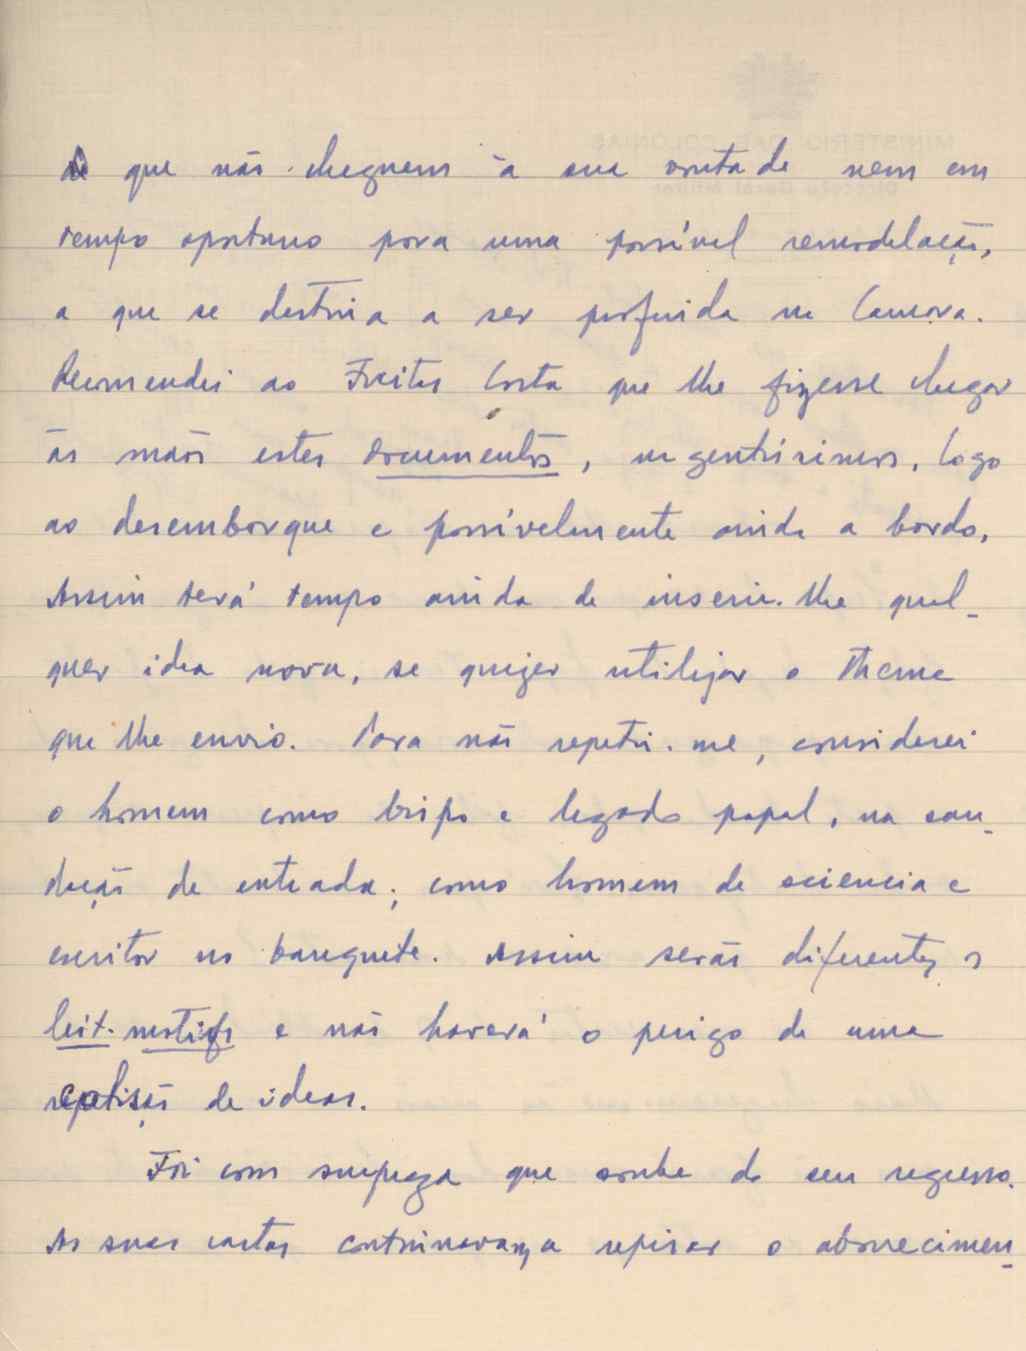 de que não cheguem à sua vontade nem em
tempo oportuno para uma possível remodelação,
a que se destina a ser proferida na Camara.
Recomendei ao Freitas Costa que lhe fizesse chegar
ás mãos estes documentos, urgentissimos, logo
ao desembarque e possívelmente ainda a bordo.
Assim terá tempo ainda de inserir-lhe qual-
quer idea nova, se quizer utilizar o thema
que lhe envio. Para não repetir-me, considerei
o homem como bispo e legado papal, na sau-
dação de entrada; como homem de sciencia e
escritor no banquete. Assim serão diferentes os
leit-motifs e não haverá o perigo de uma
repetição de ideas.
Foi com surpreza que soube do seu regresso.
As suas cartas continuavam a repisar o aborrecimen-